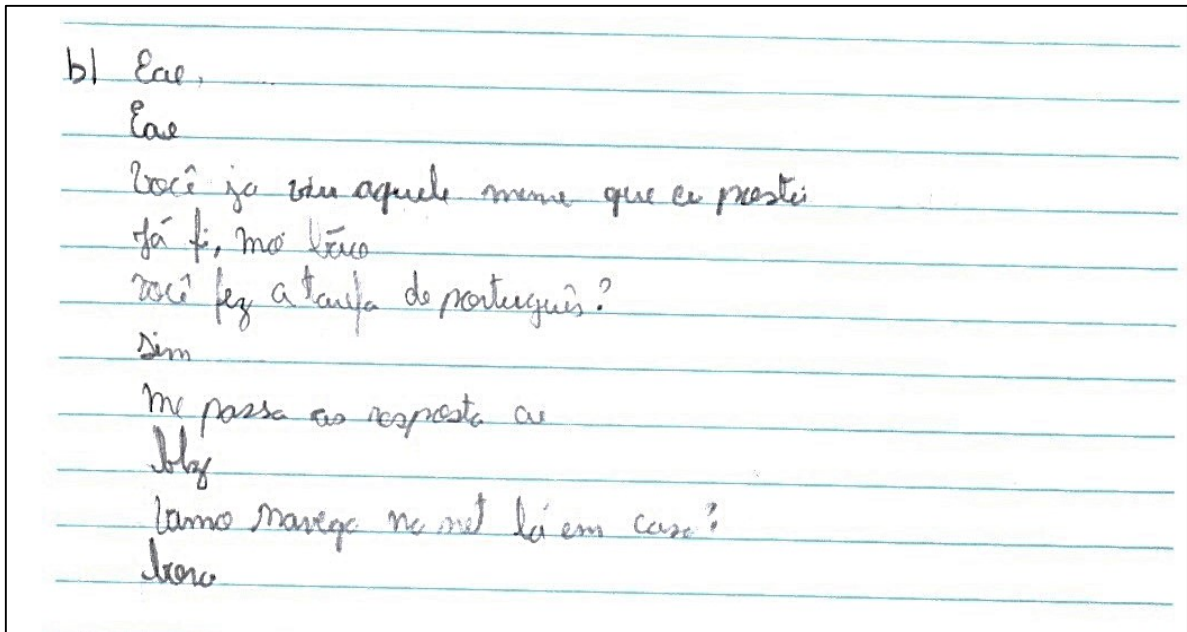 b) Eae,
Eae
Você ja viu aquele meme que eu postei
Já fi, mó
você fez a tarefa de português?
sim
me passa as resposta ae
blz
Vamo navega na net lá em casa?
bora